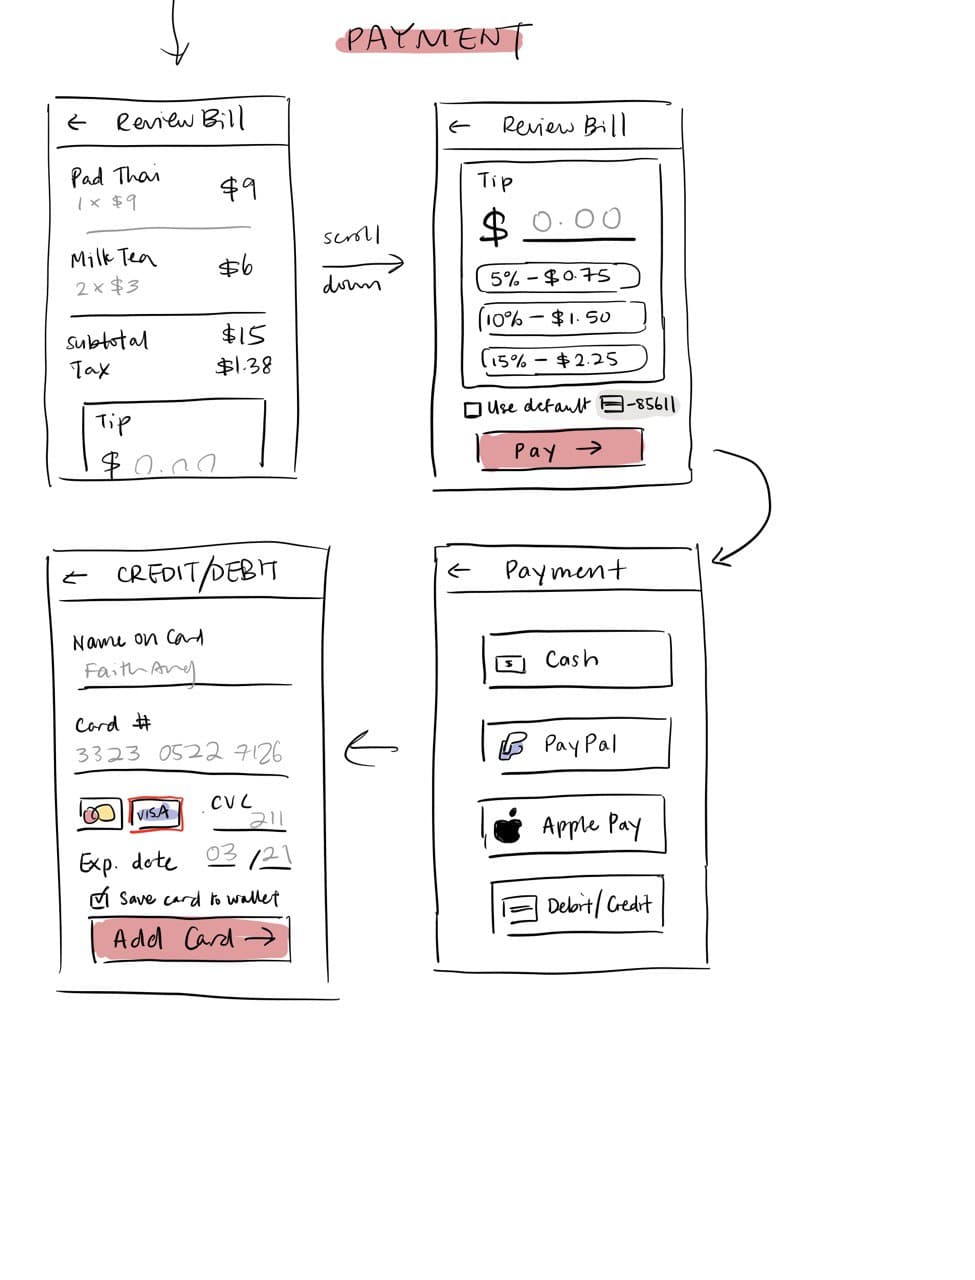 PAYMENT
← Review Bill
Pad Thai $9
1 x $9
Milk Tea $6
2 x $3
Subtotal $15
Tax $1.38
Tip
$ 0.00
scroll
down
← Review Bill
Tip
$ 0.00
5% - $0.75
10% - $1.50
15% - $2.25
Use default -85611
Pay →
← Payment
$ Cash
PayPal
Apple Pay
Debit/Credit
← CREDIT/DEBIT
Name on Card
Faith Ang
Card #
3323 0522 7126
VISA CVC
211
Exp. date 03 /21
Save card to wallet
Add Card →